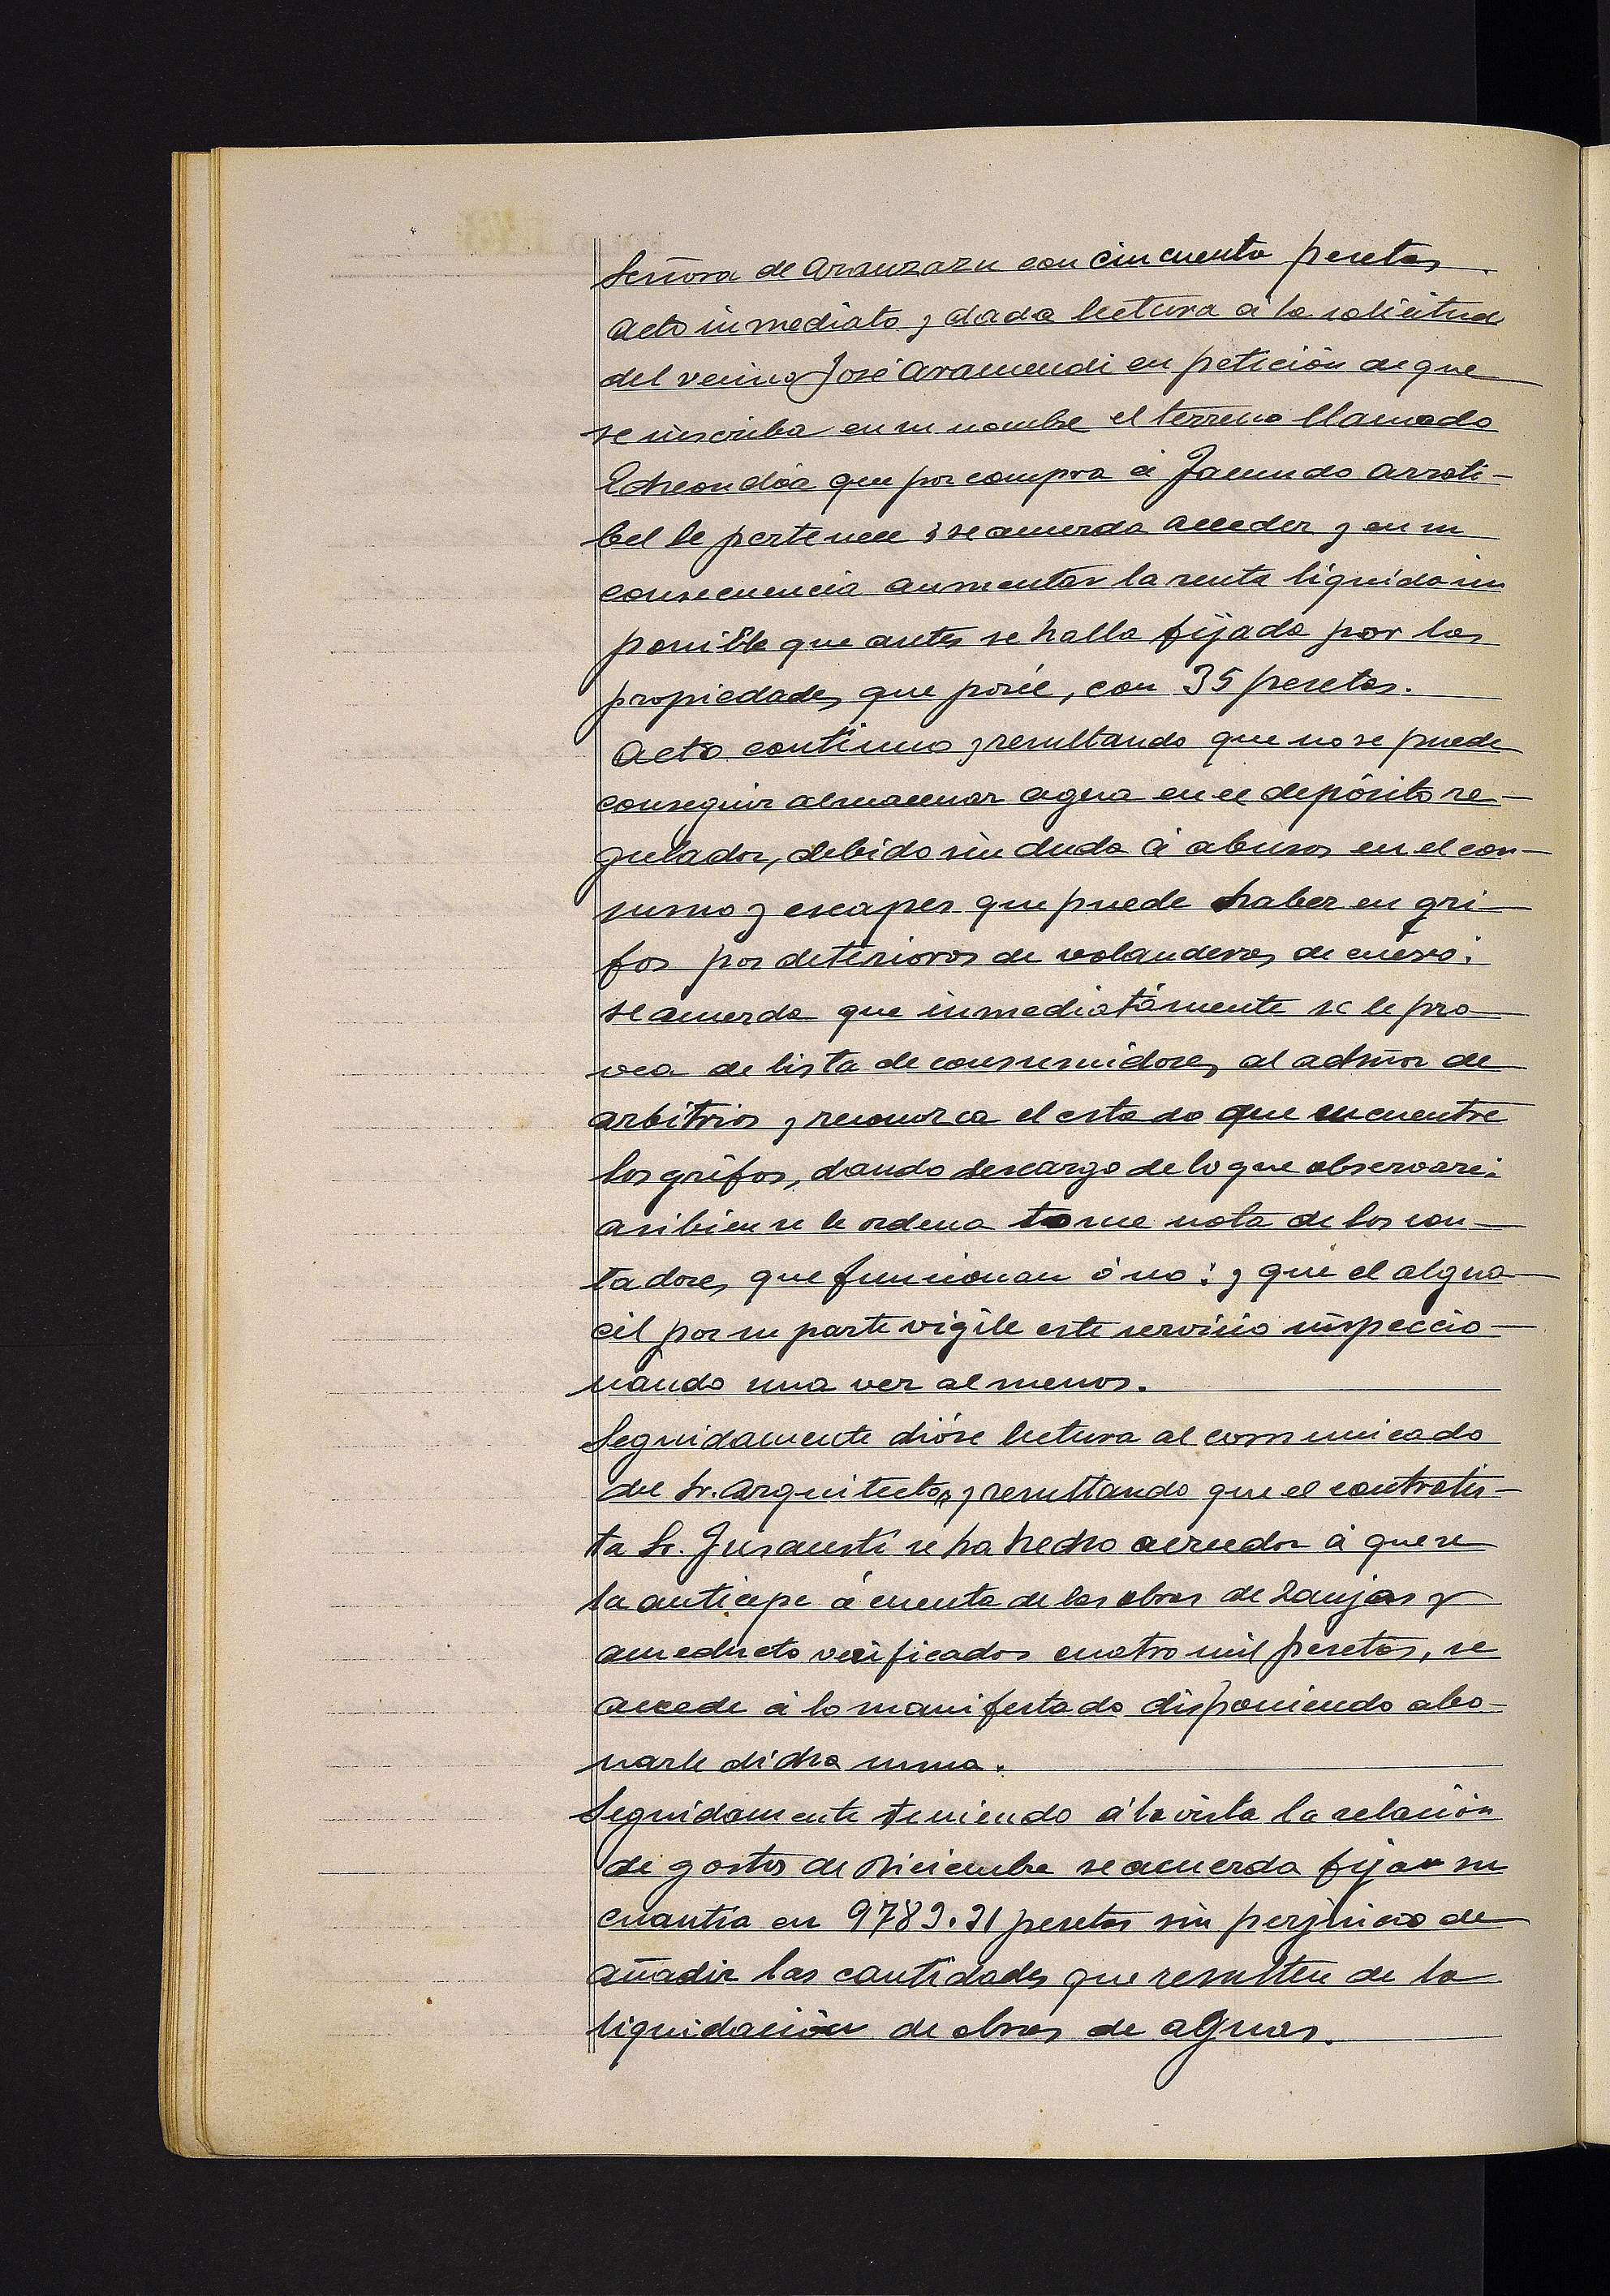 Señora de Aranzazu con cincuenta pesetas.
Acto inmediato y dada lectura á la solicitud
del vecino José Aramendi en petición de que
se inscriba en su nombre el terreno llamado
que por compra á Jacundo Arroti-
bel le pertenece; se acuerda acceder y en su
consecuencia aumentar la renta liquida im
ponible que antes se halla fijada por las
propiedades que posée, con 35 pesetas.
Acto continuo y resultando que no se puede
conseguir almacenar agua en el depósito re-
gulador, debido sin duda á abusos en el con-
sumo y escapes que puede haber en gri-
fos por deterioros de volanderas de cuero;
se acuerda que inmediatamente se le pro-
vea de lista de consumidores al admor de
arbitrios y reconozca el estado que encuentre
los grifos, dando descargo de lo que observare;
asibien se le ordena tome nota de los con-
tadores que funcionan ó no; y que el algua-
cil por su parte vigile este servicio inspeccio-
nando una vez al menos.
Seguidamente dióse lectura al comunicado
del Sr. Arquitecto, y resultando que el contratis-
ta Sr. se ha hecho acreedor á que se
la anticipe á cuenta de las obras de zanjas y
acueducto verificados cuatro mil pesetas, se
accede á lo manifestado disponiendo abo-
narle dicha suma.
Seguidamente teniendo á la vista la relación
de gastos de Diciembre se acuerda fijar su
cuantía en 9789.21 pesetas sin perjuicio de
añadir las cantidades que resulten de la
liquidación de obras de aguas.